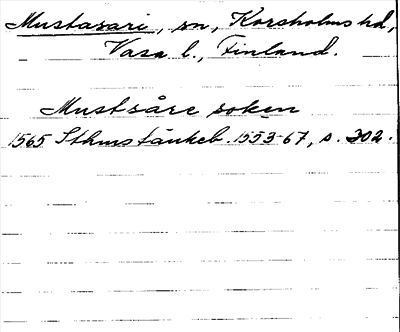 Mustasari, sn, Korsholms hd,
Vasa l., Finland.
Mustsåre soken
1565 Sthms tänkeb. 1553-67, s. 302.